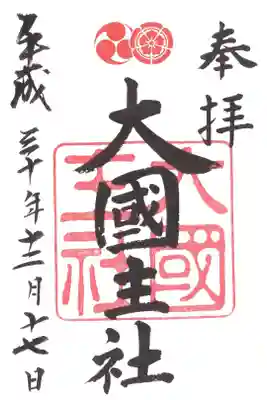 奉拝
大國主社
大國主社
平成三十年十二月十七日